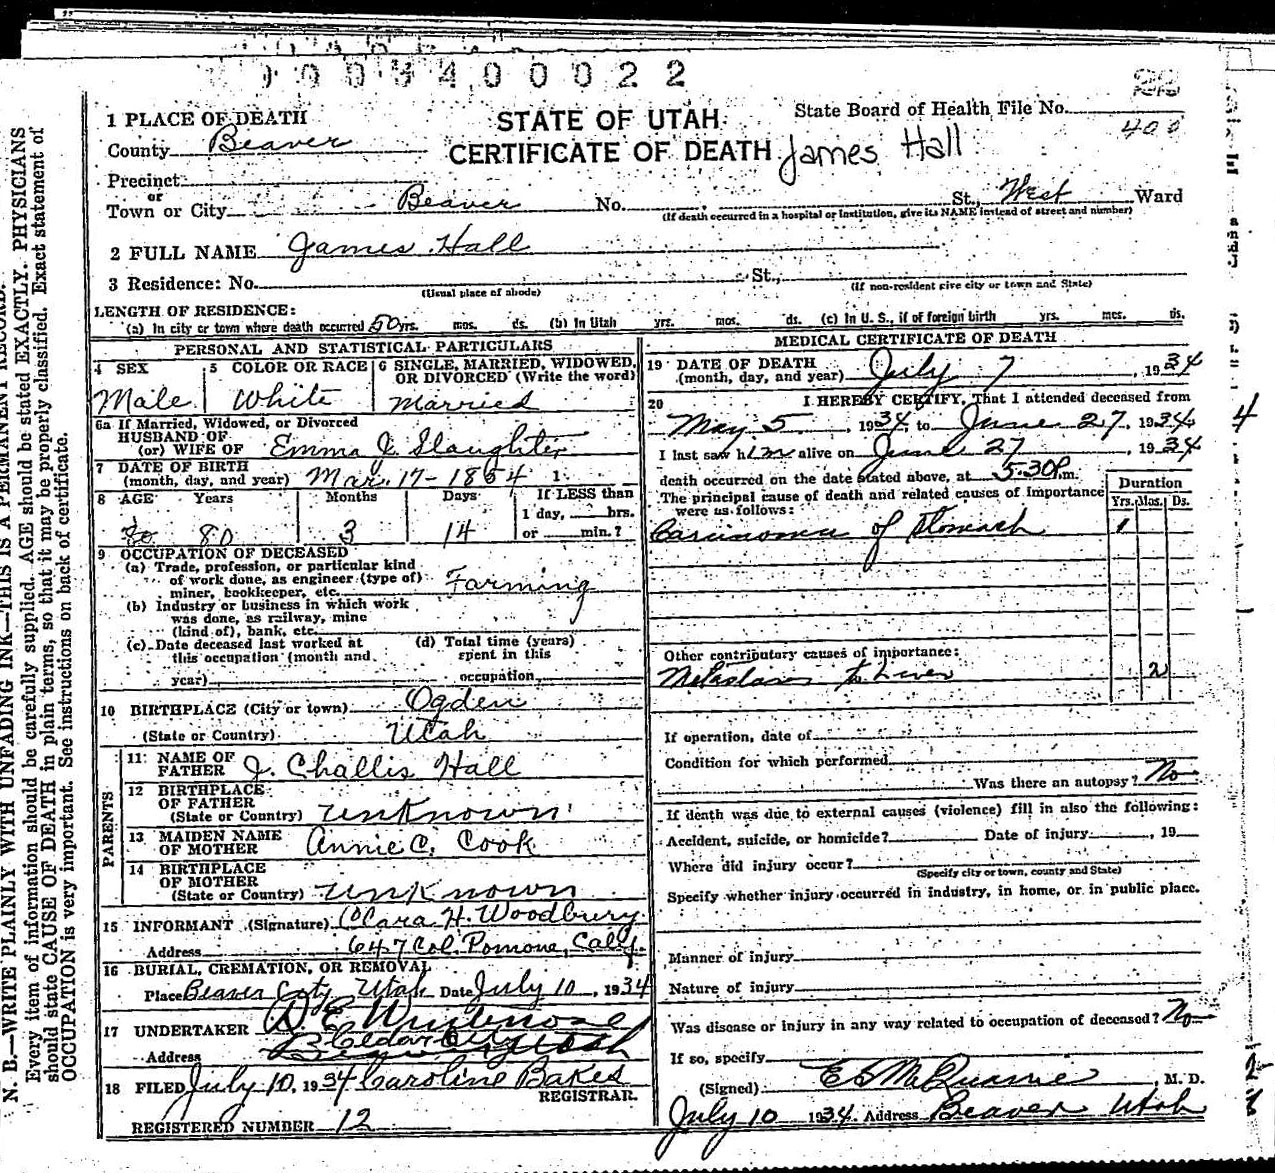 0003400022
22
400
1 PLACE OF DEATH
STATE OF UTAH
State Board of Health File No.
County Beaver
CERTIFICATE OF DEATH James Hall
Precinct
or
Town or City Beaver No. St., West Ward
(If death occurred in a hospital or institution, give its NAME instead of street and number)
2 FULL NAME James Hall
3 Residence: No. St.,
(Usual place of abode) (If non-resident give city or town and State)
LENGTH OF RESIDENCE:
(a) In city or town where death occurred 50 yrs. mos. ds. (b) In Utah yrs. mos. ds. (c) In U. S., if of foreign birth yrs. mos. ds.
PERSONAL AND STATISTICAL PARTICULARS
4 SEX 5 COLOR OR RACE 6 SINGLE, MARRIED, WIDOWED, OR DIVORCED (Write the word)
Male White Married
6a If Married, Widowed, or Divorced
HUSBAND OF
(or) WIFE OF Emma J. Slaughter
7 DATE OF BIRTH
(month, day, and year) Mar. 17-1854 1
8 AGE Years Months Days If LESS than
1 day, hrs.
80 80 3 14 or min.?
9 OCCUPATION OF DECEASED
(a) Trade, profession, or particular kind
of work done, as engineer (type of)
miner, bookkeeper, etc. Farming
(b) Industry or business in which work
was done, as railway, mine
(kind of), bank, etc.
(c) Date deceased last worked at
this occupation (month and
year)
(d) Total time (years)
spent in this
occupation
10 BIRTHPLACE (City or town) Ogden
(State or Country) Utah
PARENTS
11 NAME OF
FATHER J. Challis Hall
12 BIRTHPLACE
OF FATHER
(State or Country) unknown
13 MAIDEN NAME
OF MOTHER Annie C. Cook
14 BIRTHPLACE
OF MOTHER
(State or Country) unknown
15 INFORMANT (Signature) Clara H. Woodbury
Address 647 Col. Pomona, Calif.
16 BURIAL, CREMATION, OR REMOVAL
Place Beaver City Utah Date July 10, 1934
17 UNDERTAKER
Address Cedar City Utah
18 FILED July 10, 1934 Caroline Bakes
REGISTRAR.
REGISTERED NUMBER 12
MEDICAL CERTIFICATE OF DEATH
19 DATE OF DEATH
(month, day, and year) July 7, 1934
20 I HEREBY CERTIFY, That I attended deceased from
May 5 1934 to June 27, 1934
I last saw him alive on June 27, 1934
death occurred on the date stated above, at 5:30 P. m.
The principal cause of death and related causes of importance
were us follows:
Duration
Yrs. Mos. Ds.
Carcinoma of Stomach 1
Other contributory causes of importance:
Metastasis to Liver 2
If operation, date of
Condition for which performed
Was there an autopsy? No
If death was due to external causes (violence) fill in also the following:
Accident, suicide, or homicide? Date of injury , 19
Where did injury occur?
(Specify city or town, county and State)
Specify whether injury occurred in industry, in home, or in public place.
Manner of injury
Nature of injury
Was disease or injury in any way related to occupation of deceased? No
If so, specify
(Signed) , M. D.
July 10 1934 Address Beaver Utah
4
N. B.—WRITE PLAINLY WITH UNFADING INK—THIS IS A PERMANENT RECORD.
Every item of information should be carefully supplied. AGE should be stated EXACTLY. PHYSICIANS
should state CAUSE OF DEATH in plain terms, so that it may be properly classified. Exact statement of
OCCUPATION is very important. See instructions on back of certificate.